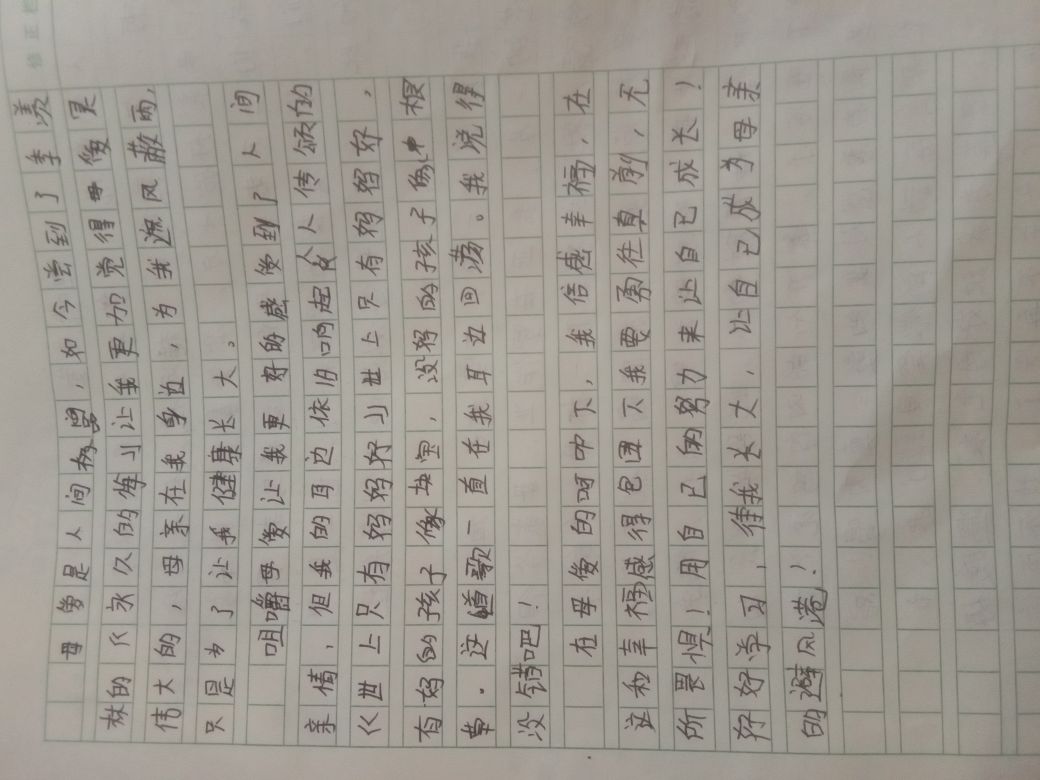 修正栏
母爱是人间极品，如今尝到了季羡
林的《永久的悔》让我更加觉得母爱是
伟大的，母亲在我身边，为我遮风蔽雨，
只是为了让我健康长大。
咀嚼母爱让我更好的感受到了人间
亲情，但我的耳边依旧响起人人传颂的
《世上只有妈妈好》世上只有妈妈好，
有妈的孩子像块宝，没妈的孩子像根
草。这首歌一直在我耳边回荡。我说得
没错吧！
在母爱的呵护下，我倍感幸福，在
这种幸福感得包围下我要勇往直前，无
所畏惧！用自己的努力来让自己成长！
好好学习，待我长大，让自己成为母亲
的避风港！